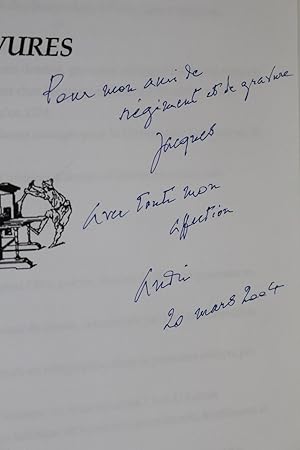 VURES
Pour mon ami de
régiment et de gravure
Jacques
avec toute mon
affection
André
20 mars 2004